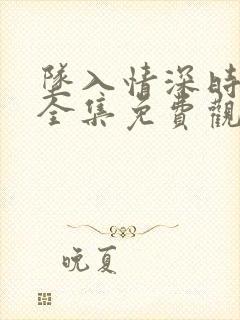 隊入情深時
全集免費觀
晚夏